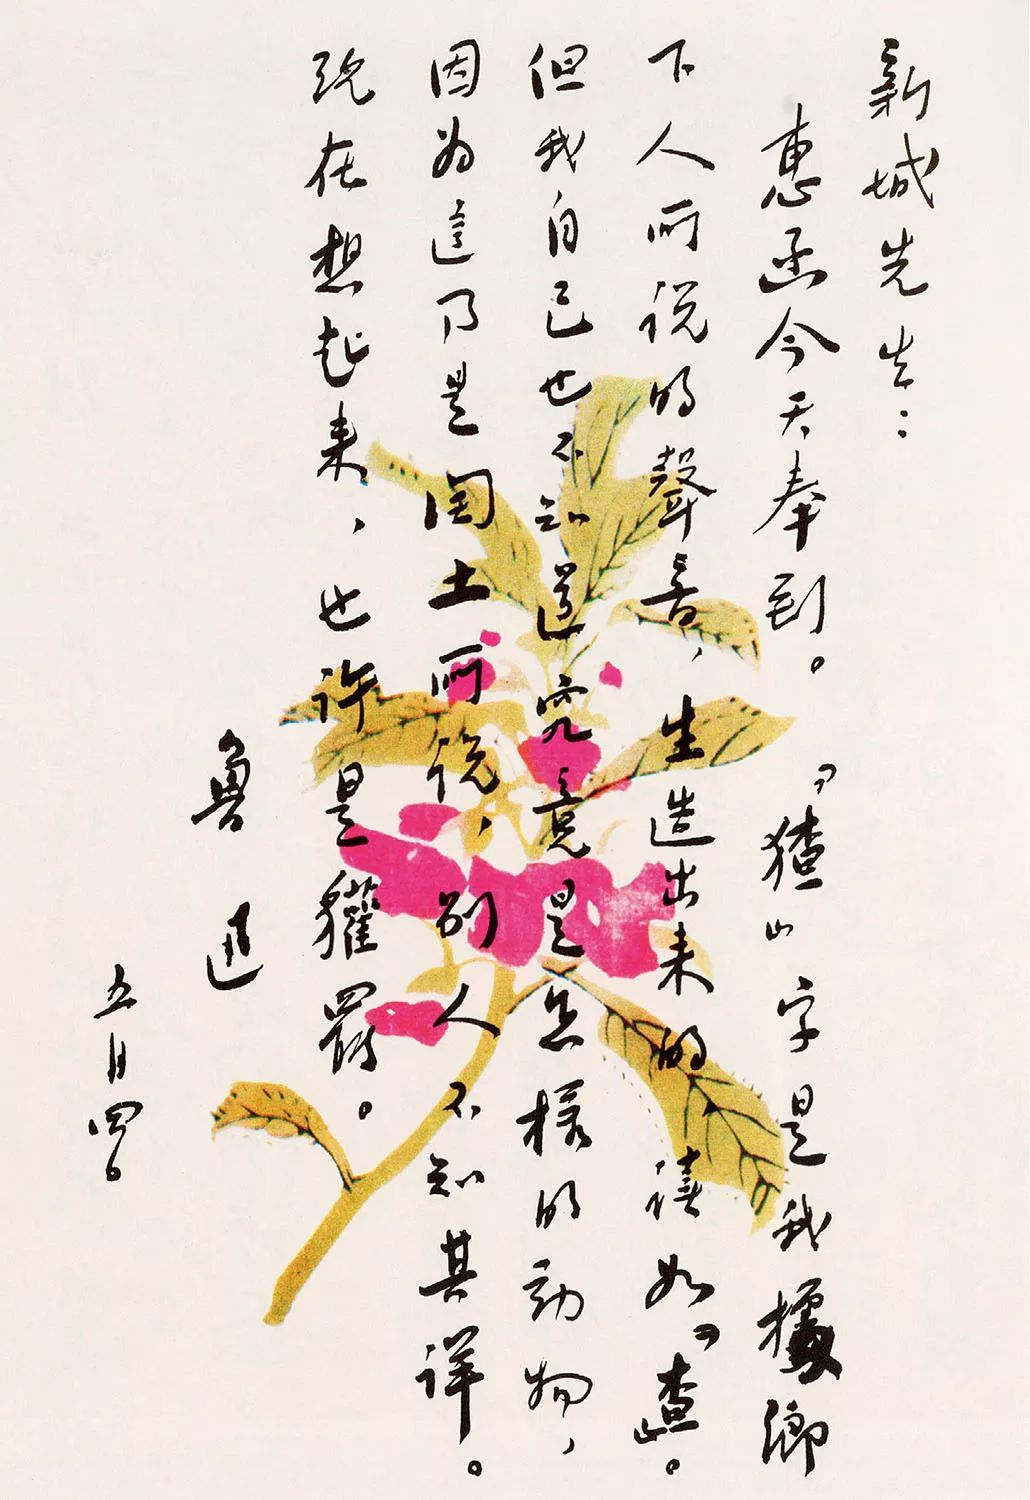 新城先生：
惠函今天奉到。「猹」字是我據鄉
下人所说的聲音，生造出来的，读如「查」。
但我自己也不知道究竟是怎樣的动物，
因为這乃是闰土所说，别人不知其详。
现在想起来，也许是獾罢。
鲁迅
五月四日